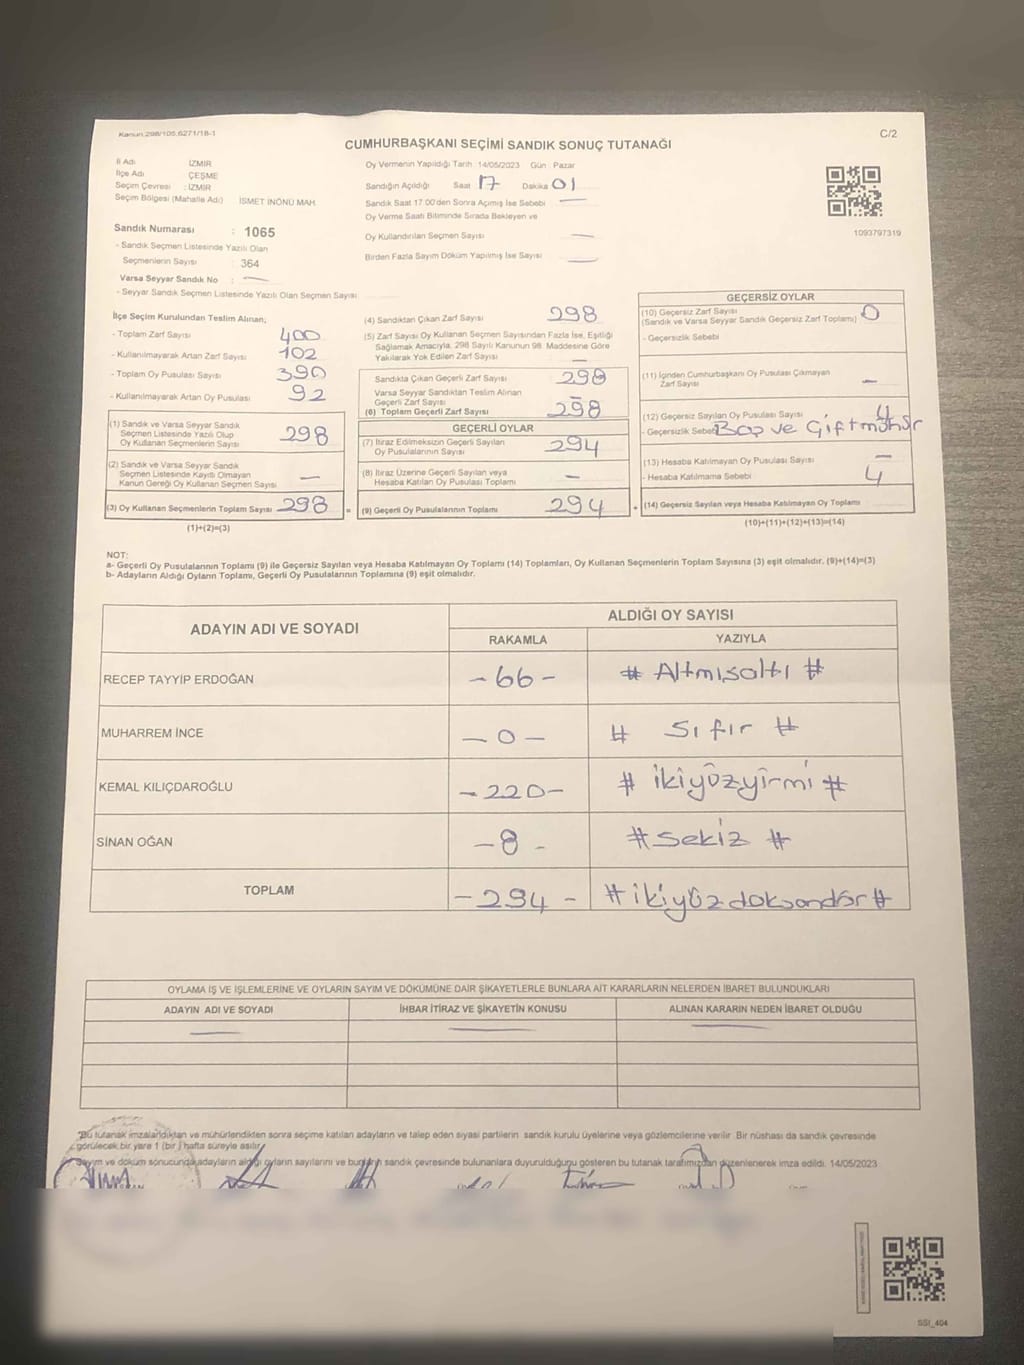 Kanun.298/105,6271/18-1
C/2
CUMHURBAŞKANI SEÇİMİ SANDIK SONUÇ TUTANAĞI
İl Adı İZMİR
İlçe Adı ÇEŞME
Seçim Çevresi : İZMİR
Seçim Bölgesi (Mahalle Adı) İSMET İNÖNÜ MAH.
Sandık Numarası : 1065
- Sandık Seçmen Listesinde Yazılı Olan
Seçmenlerin Sayısı : 364
Varsa Seyyar Sandık No : —
- Seyyar Sandık Seçmen Listesinde Yazılı Olan Seçmen Sayısı
Oy Vermenin Yapıldığı Tarih 14/05/2023 Gün Pazar
Sandığın Açıldığı Saat 17 Dakika 01
Sandık Saat 17.00'den Sonra Açımış İse Sebebi —
Oy Verme Saati Bitiminde Sırada Bekleyen ve
Oy Kullandırılan Seçmen Sayısı —
Birden Fazla Sayım Döküm Yapılmış İse Sayısı —
1093797319
İlçe Seçim Kurulundan Teslim Alınan;
- Toplam Zarf Sayısı 400
- Kullanılmayarak Artan Zarf Sayısı 102
- Toplam Oy Pusulası Sayısı 390
- Kullanılmayarak Artan Oy Pusulası 92
(1) Sandık ve Varsa Seyyar Sandık
Seçmen Listesinde Yazılı Olup
Oy Kullanan Seçmenlerin Sayısı 298
(2) Sandık ve Varsa Seyyar Sandık
Seçmen Listesinde Kayıtlı Olmayan
Kanun Gereği Oy Kullanan Seçmen Sayısı —
(3) Oy Kullanan Seçmenlerin Toplam Sayısı 298 =
(1)+(2)=(3)
(4) Sandıktan Çıkan Zarf Sayısı 298
(5) Zarf Sayısı Oy Kullanan Seçmen Sayısından Fazla İse, Eşitliği
Sağlamak Amacıyla, 298 Sayılı Kanunun 98. Maddesine Göre
Yakılarak Yok Edilen Zarf Sayısı —
Sandıkta Çıkan Geçerli Zarf Sayısı 298
Varsa Seyyar Sandıktan Teslim Alınan
Geçerli Zarf Sayısı —
(6) Toplam Geçerli Zarf Sayısı 298
GEÇERLİ OYLAR
(7) İtiraz Edilmeksizin Geçerli Sayılan
Oy Pusulalarının Sayısı 294
(8) İtiraz Üzerine Geçerli Sayılan veya
Hesaba Katılan Oy Pusulası Toplamı —
(9) Geçerli Oy Pusulalarının Toplamı 294 +
GEÇERSİZ OYLAR
(10) Geçersiz Zarf Sayısı 0
(Sandık ve Varsa Seyyar Sandık Geçersiz Zarf Toplamı)
- Geçersizlik Sebebi
(11) İçinden Cumhurbaşkanı Oy Pusulası Çıkmayan
Zarf Sayısı —
(12) Geçersiz Sayılan Oy Pusulası Sayısı 4
- Geçersizlik Sebebi Boş ve Çift mühür
(13) Hesaba Katılmayan Oy Pusulası Sayısı —
- Hesaba Katılmama Sebebi 4
(14) Geçersiz Sayılan veya Hesaba Katılmayan Oy Toplamı
(10)+(11)+(12)+(13)=(14)
NOT:
a- Geçerli Oy Pusulalarının Toplamı (9) ile Geçersiz Sayılan veya Hesaba Katılmayan Oy Toplamı (14) Toplamları, Oy Kullanan Seçmenlerin Toplam Sayısına (3) eşit olmalıdır. (9)+(14)=(3)
b- Adayların Aldığı Oyların Toplamı, Geçerli Oy Pusulalarının Toplamına (9) eşit olmalıdır.
ADAYIN ADI VE SOYADI ALDIĞI OY SAYISI
RAKAMLA YAZIYLA
RECEP TAYYİP ERDOĞAN - 66 - # Altmışaltı #
MUHARREM İNCE - 0 - # Sıfır #
KEMAL KILIÇDAROĞLU - 220 - # ikiyüzyirmi #
SİNAN OĞAN - 8 - # sekiz #
TOPLAM - 294 - # ikiyüzdoksandör #
OYLAMA İŞ VE İŞLEMLERİNE VE OYLARIN SAYIM VE DÖKÜMÜNE DAİR ŞİKAYETLERLE BUNLARA AİT KARARLARIN NELERDEN İBARET BULUNDUKLARI
ADAYIN ADI VE SOYADI İHBAR İTİRAZ VE ŞİKAYETİN KONUSU ALINAN KARARIN NEDEN İBARET OLDUĞU
"Bu tutanak imzalandıktan ve mühürlendikten sonra seçime katılan adayların ve talep eden siyasi partilerin sandık kurulu üyelerine veya gözlemcilerine verilir. Bir nüshası da sandık çevresinde
görülecek bir yere 1 (bir ) hafta süreyle asılır.
Sayım ve döküm sonucunda adayların aldığı oyların sayılarını ve bunların sandık çevresinde bulunanlara duyurulduğunu gösteren bu tutanak tarafımızdan düzenlenerek imza edildi. 14/05/2023
SSI_404